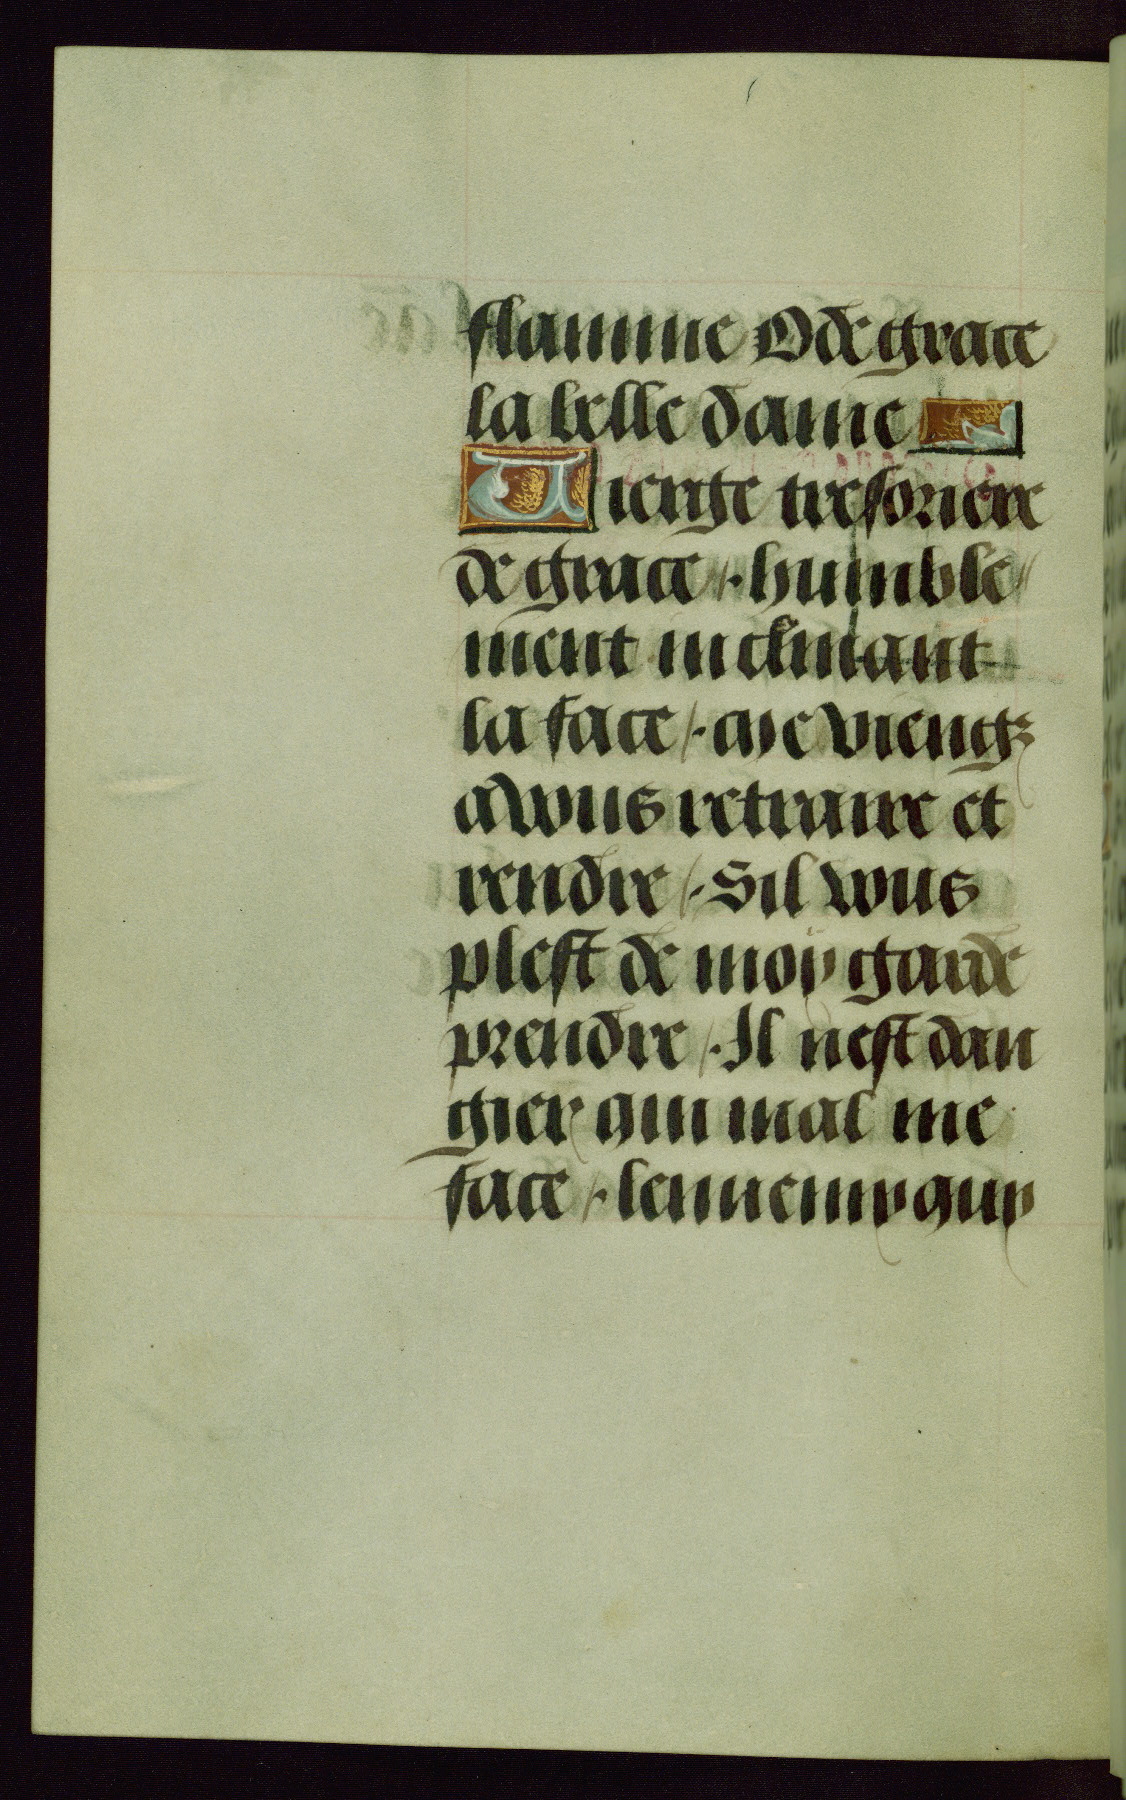 flamme O de grace
la belle dame
Vierge tresoriere
de grace /. humble
ment inclinant
la face /. Me viengz
a vous retraire et
rendre /. Sil vous
plest de moy garde
prendre /. Il nest dan
gier qui mal me
face /. lennemy quy